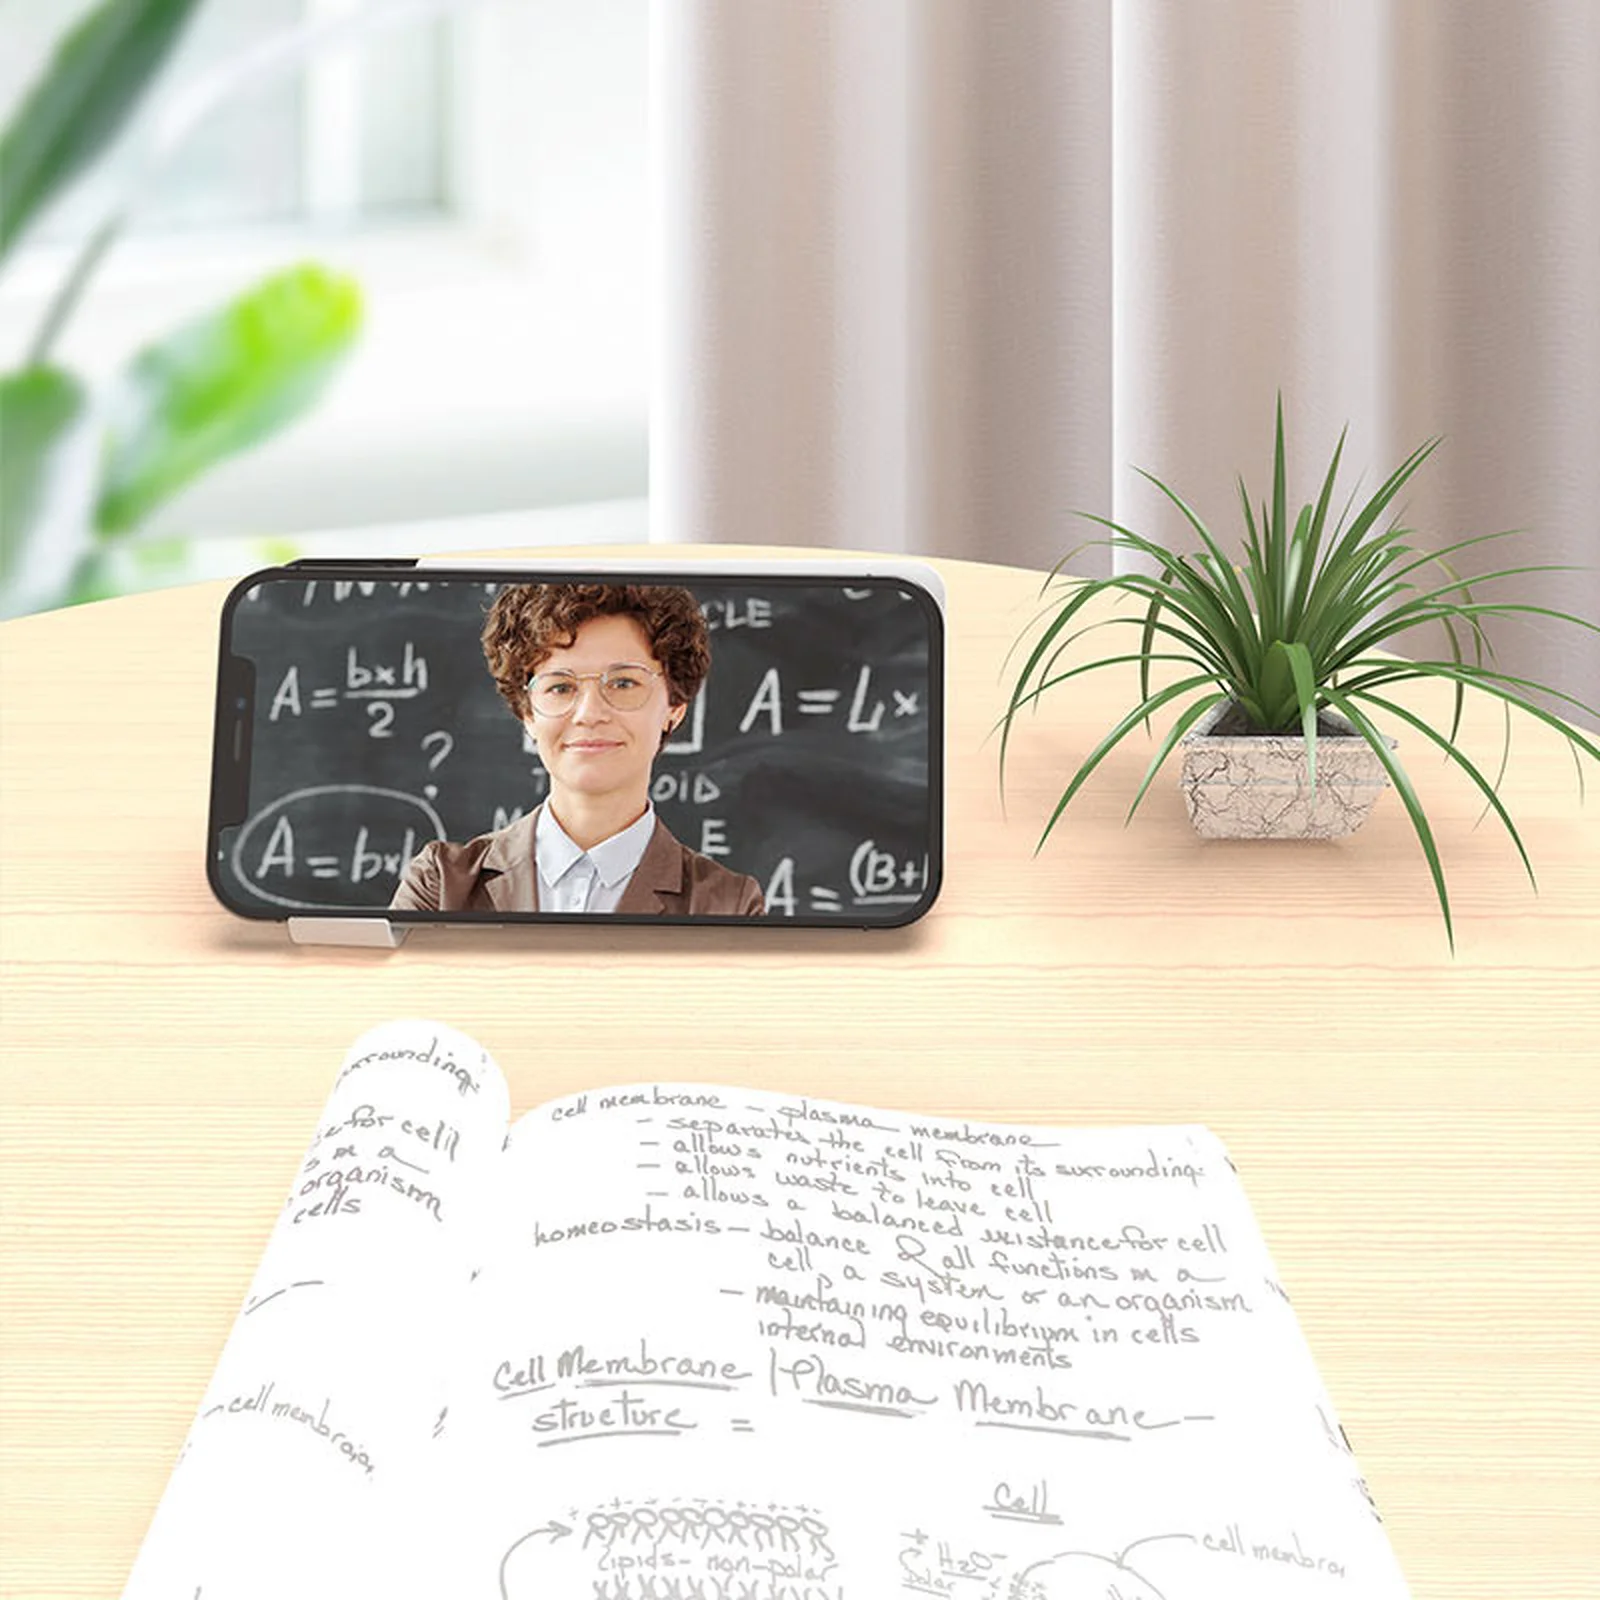 CLE
A = bxh
2
?
A = L×
OID
E
A = bxh
A = (B+
surrounding
e for cell
s in a
organism
cells
cell membrain
cell membrane – plasma membrane
– separates the cell from its surrounding
– allows nutrients into cell
– allows waste to leave cell
– allows a balanced existance for cell
homeostasis – balance of all functions in a
cell, a system or an organism
– maintaining equilibrium in cells
internal environments
Cell Membrane / Plasma Membrane –
structure =
Cell
lipids - non-polar
H2O
polar
cell membra